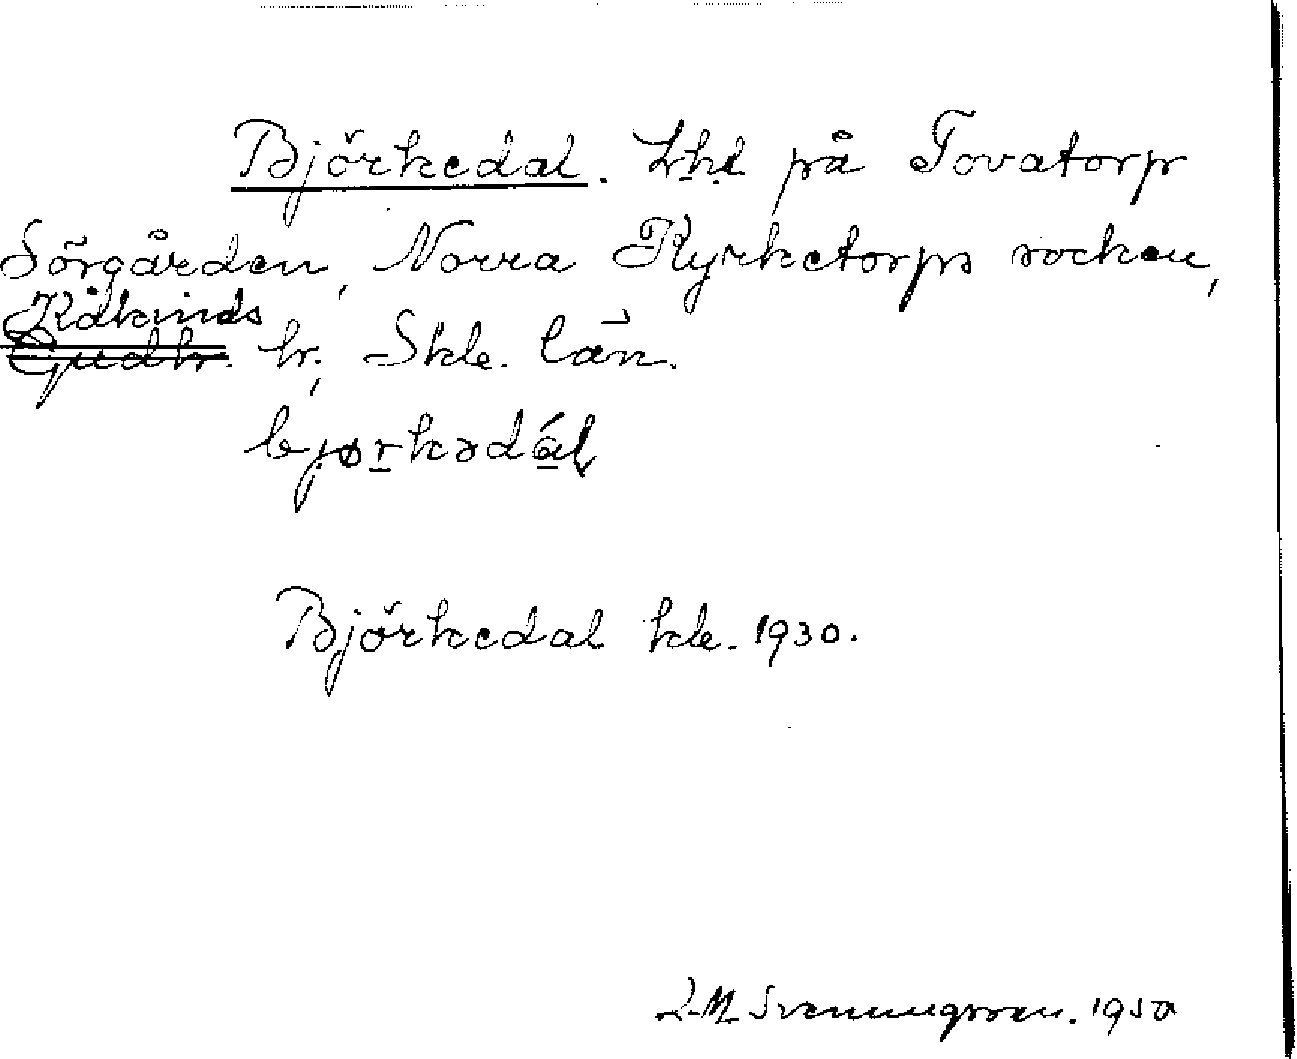 Björkedal. Lht på Tovatorp
Sörgården, Norra Kyrketorps socken,
Kåkinds
Gudh. hr, Skb. län.
bjørkədál
Björkedal kb. 1930.
L.M. Svenungsson. 1950